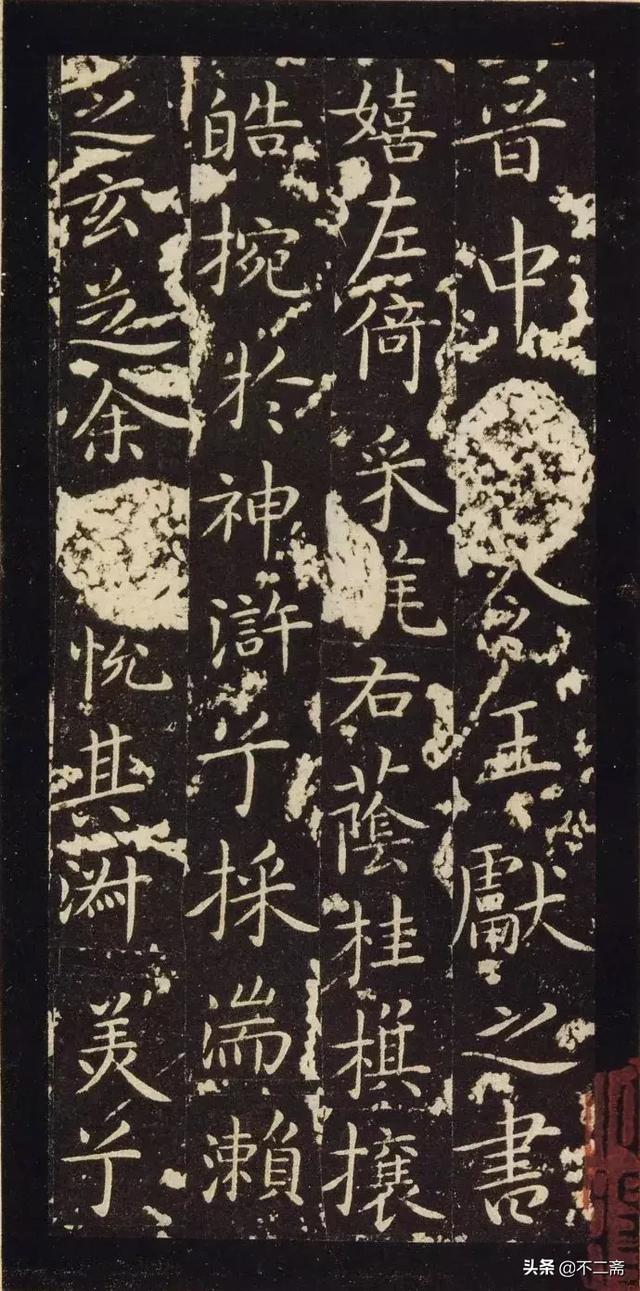 晋中令王獻之書
嬉左倚采旄右蔭桂棋攘
皓捥於神滸兮採湍瀨
之玄芝余悦其淑美兮
头条 @不二斋